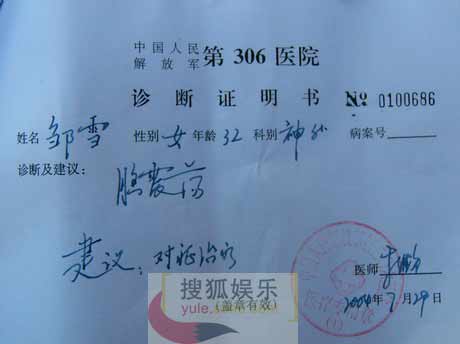 中国人民
解放军 第306医院
诊断证明书 No 0100686
姓名 邹雪 性别 女 年龄 32 科别 神外 病案号
诊断及建议：
脑震荡
建议：对症治疗
医师
搜狐娱乐
yule.
(盖章有效)
2004年7月29日